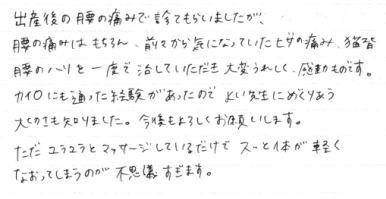 出産後の腰の痛みで診てもらいましたが、
腰の痛みはもちろん、前々から気になっていたヒザの痛み、猫背
腰のハリを一度で治していただき大変うれしく、感動ものです。
カイロにも通った経験があったので よい先生にめぐりあう
大切さも知りました。今後もよろしくお願いします。
ただ ユラユラとマッサージしているだけで スーッと体が軽く
なおってしまうのが 不思議すぎます。